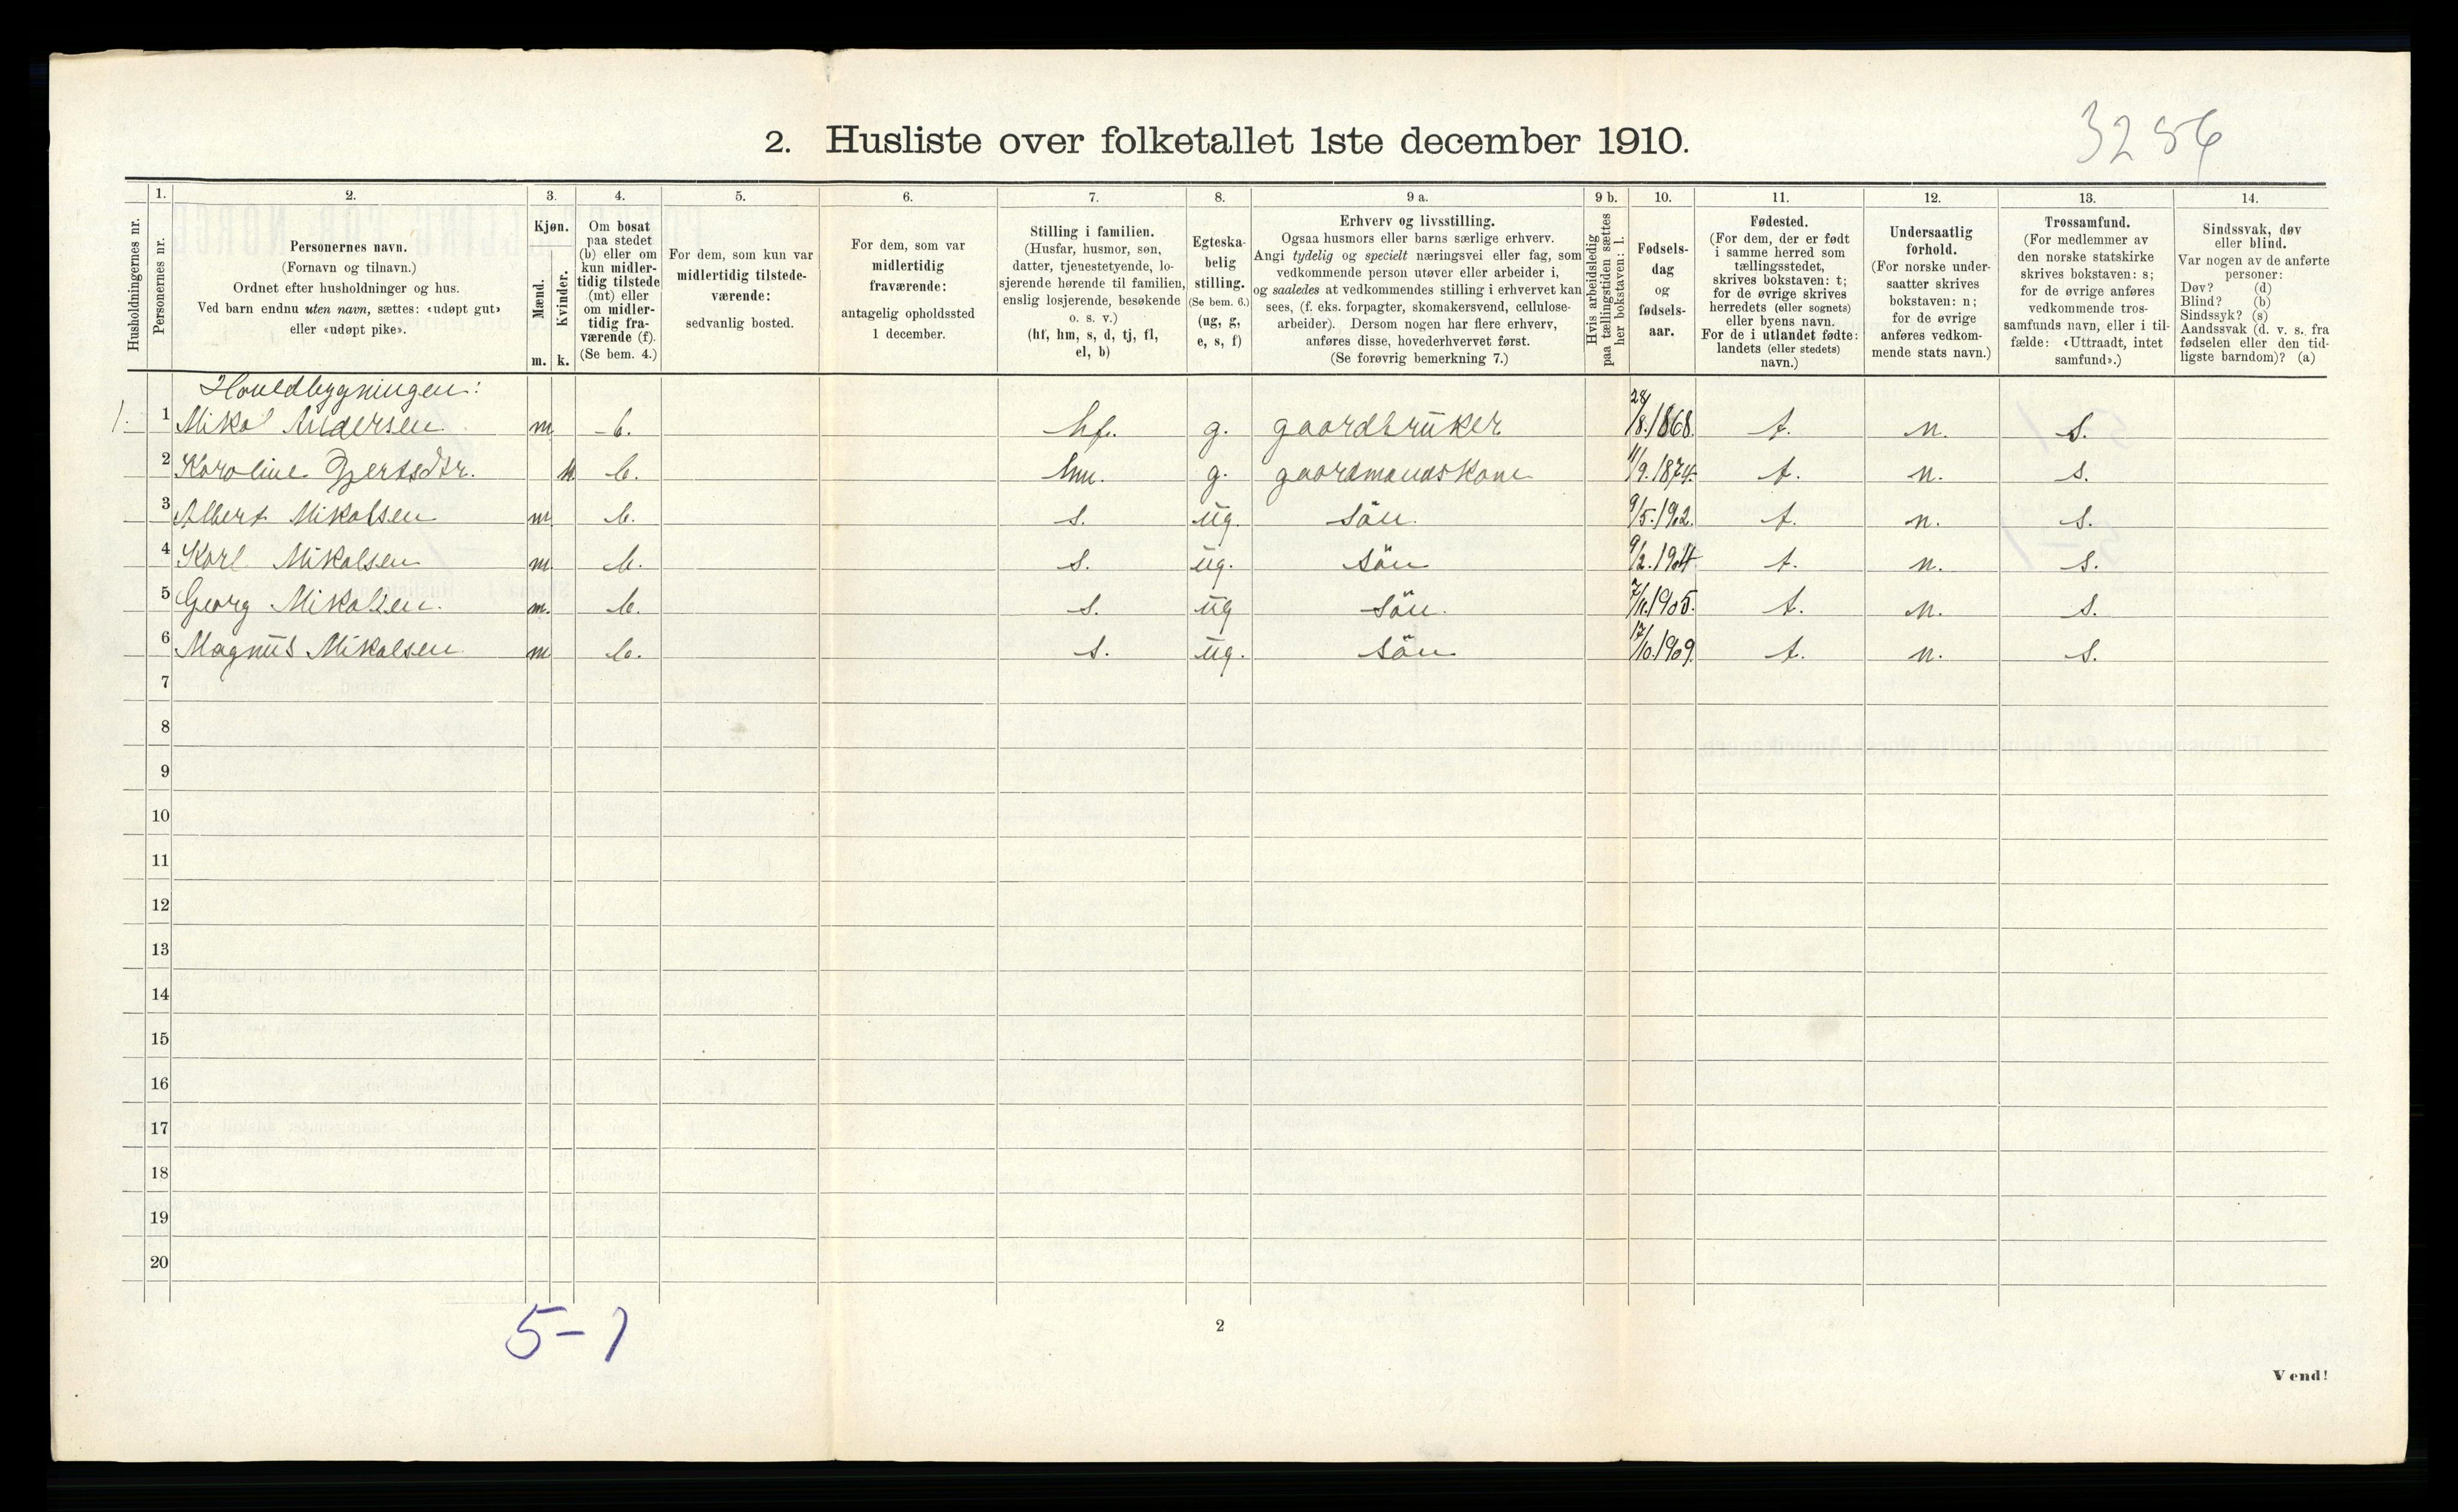 2. Husliste over folketallet 1ste december 1910.
3256
Husholdningernes nr.
1.
Personernes nr.
2.
Personernes navn.
(Fornavn og tilnavn.)
Ordnet efter husholdninger og hus.
Ved barn endnu uten navn, sættes: «udøpt gut»
eller «udøpt pike».
3.
Kjøn.
Mænd.
Kvinder.
m. k.
4.
Om bosat
paa stedet
(b) eller om
kun midler-
tidig tilstede
(mt) eller
om midler-
tidig fra-
værende (f).
(Se bem. 4.)
5.
For dem, som kun var
midlertidig tilstede-
værende:
sedvanlig bosted.
6.
For dem, som var
midlertidig
fraværende:
antagelig opholdssted
1 december.
7.
Stilling i familien.
(Husfar, husmor, søn,
datter, tjenestetyende, lo-
sjerende hørende til familien,
enslig losjerende, besøkende
o. s. v.)
(hf, hm, s, d, tj, fl,
el, b)
8.
Egteska-
belig
stilling.
(Se bem. 6.)
(ug, g,
e, s, f)
9 a.
Erhverv og livsstilling.
Ogsaa husmors eller barns særlige erhverv.
Angi tydelig og specielt næringsvei eller fag, som
vedkommende person utøver eller arbeider i,
og saaledes at vedkommendes stilling i erhvervet kan
sees, (f. eks. forpagter, skomakersvend, cellulose-
arbeider). Dersom nogen har flere erhverv,
anføres disse, hovederhvervet først.
(Se forøvrig bemerkning 7.)
9 b.
Hvis arbeidsledig
paa tællingstiden sættes
her bokstaven: l.
10.
Fødsels-
dag
og
fødsels-
aar.
11.
Fødested.
(For dem, der er født
i samme herred som
tællingsstedet,
skrives bokstaven: t;
for de øvrige skrives
herredets (eller sognets)
eller byens navn.
For de i utlandet fødte:
landets (eller stedets)
navn.)
12.
Undersaatlig
forhold.
(For norske under-
saatter skrives
bokstaven: n;
for de øvrige
anføres vedkom-
mende stats navn.)
13.
Trossamfund.
(For medlemmer av
den norske statskirke
skrives bokstaven: s;
for de øvrige anføres
vedkommende tros-
samfunds navn, eller i til-
fælde: «Uttraadt, intet
samfund».)
14.
Sindssvak, døv
eller blind.
Var nogen av de anførte
personer:
Døv? (d)
Blind? (b)
Sindssyk? (s)
Aandssvak (d. v. s. fra
fødselen eller den tid-
ligste barndom)? (a)
Hovedbygningen:
1. 1 Mikal Andersen m b. hf. g. gaardbruker 28/8.1868. t. n. s.
2 Karoline Gjertsdtr. k b. hm. g. gaardmandskone 11/9.1874. t. n. s.
3 Albert Mikalsen m b. s. ug. sön. 9/5.1902. t. n. s.
4 Karl Mikalsen m b. s. ug. sön 9/2.1904. t. n. s.
5 Georg Mikalsen. m. b. s. ug sön. 7/11.1905. t. n. s.
6 Magnus Mikalsen m b. s. ug. sön 17/10.1909. t. n. s.
7
8
9
10
11
12
13
14
15
16
17
18
19
20
5-1
2
Vend!